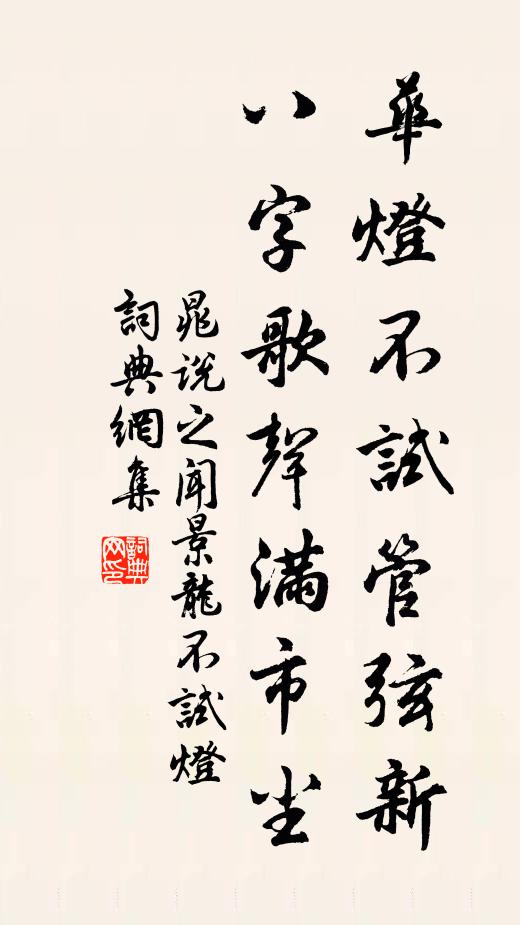 華燈不試管弦新
八字歌聲滿市尘
晁说之聞景龍不試燈
詞典網集
詞典网印